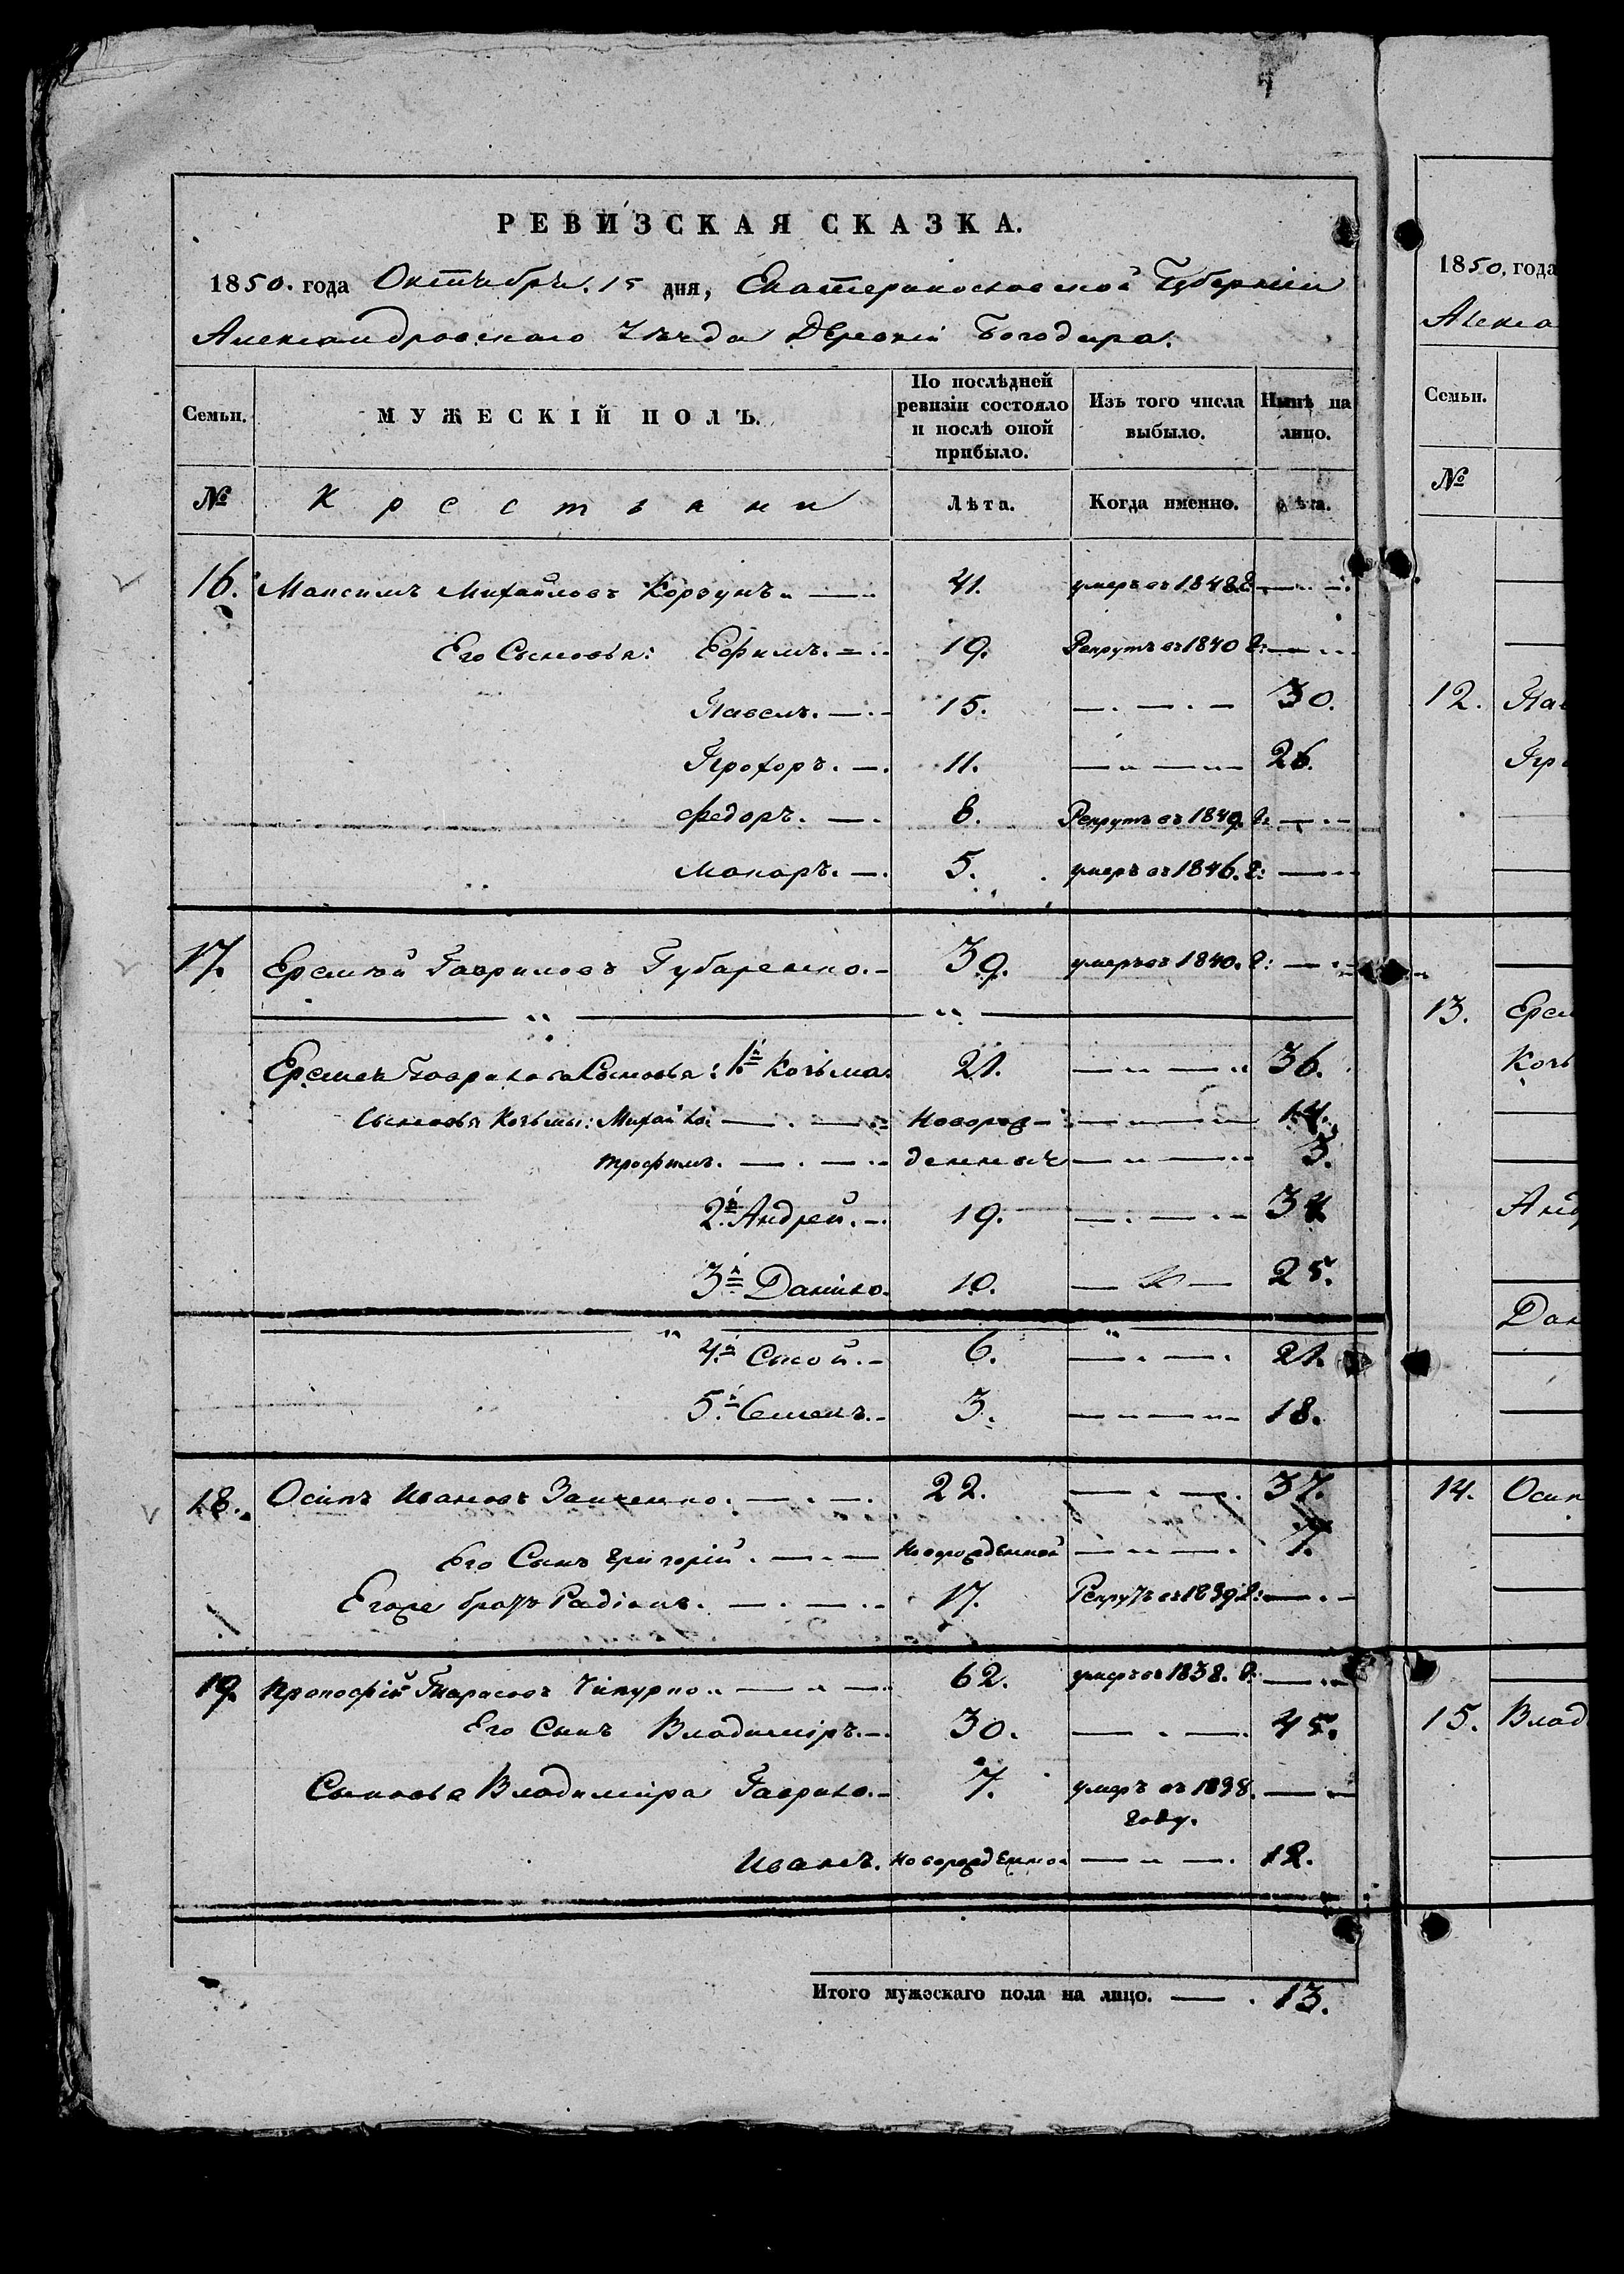 РЕВИЗСКАЯ СКАЗКА.
1850. года Октября. 15 дня, Екатеринославской Губерніи
Александровскаго Уѣзда Деревни Богодара.
Семьи.
МУЖЕСКІЙ ПОЛЪ.
По послѣдней ревизіи состояло и послѣ оной прибыло.
Изъ того числа выбыло.
Нынѣ на лицо.
№ Крестьяни Лѣта. Когда именно. Лѣта.
16. Максимъ Михайловъ Корзунъ. 41. умеръ въ 1848 г.
Его Сыновья: Ефимъ. 19. Рекрутъ въ 1840 г:
Павелъ. 15. 30.
Прохоръ. 11. 26.
Федоръ. 8. Рекрутъ въ 1849. г:
Макаръ. 5. умеръ въ 1846. г:
17. Еремѣй Гавриловъ Губаренко. 39. умеръ въ 1840. г:
Еремея Гаврилова Сыновья: 1й Козьма. 21. 36.
Сыновья Козьмы: Михайло: Новорож- 14.
Трофимъ. денныя 3.
2й Андрей. 19. 34
3й Данило. 10. 25.
4й Сысой. 6. 21.
5й Семенъ. 3. 18.
18. Осипъ Ивановъ Заиченко. 22. 37.
Его Сынъ Григорій. Новорожденной 7.
Егоже братъ Радіонъ. 17. Рекрутъ въ 1839 г:
19. Прокофій Тарасовъ Чикурко. 62. умеръ въ 1838. г:
Его Сынъ Владиміръ. 30. 45.
Сыновья Владиміра Гаврило. 7. умеръ въ 1838.
году.
Иванъ. новорожденно. 12.
Итого мужескаго пола на лицо. 13.
1850. года
Алекса
Семьи.
№
12. Пав
Пр
13. Ерем
Козь
Анд
Дан
14. Осип
15. Влад